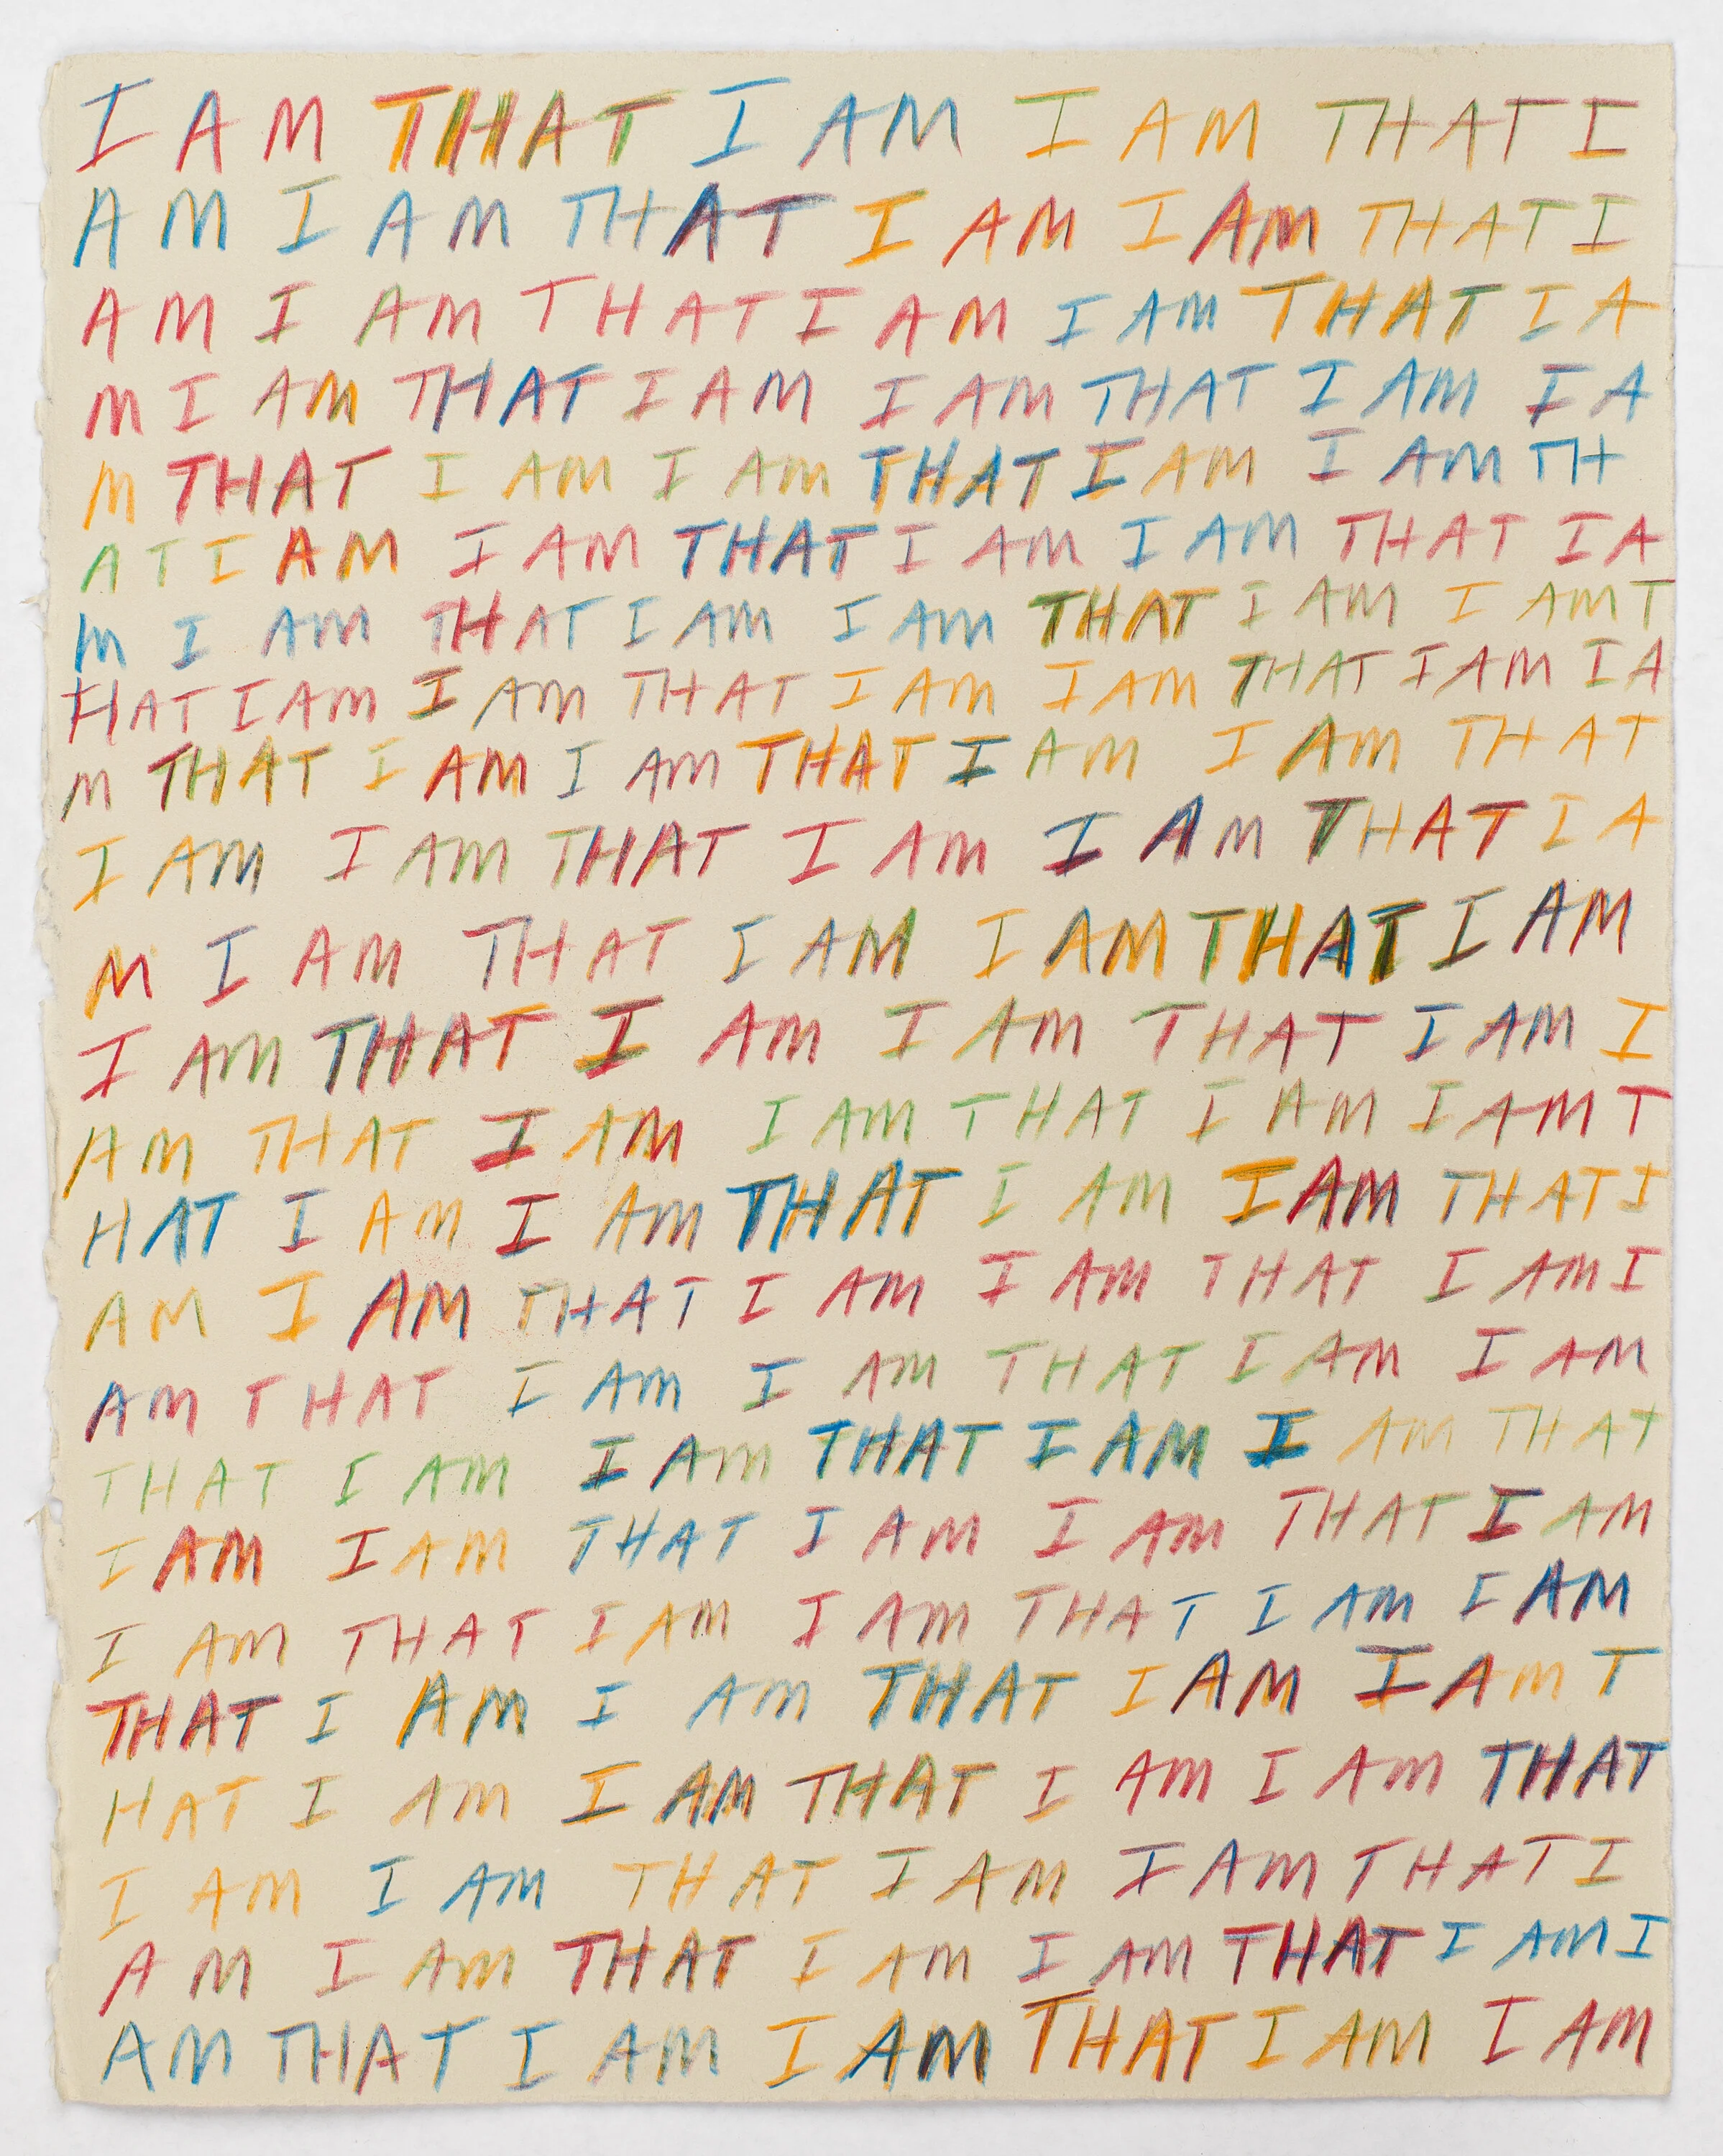 I AM THAT I AM I AM THAT I
AM I AM THAT I AM I AM THAT I
AM I AM THAT I AM I AM THAT I A
M I AM THAT I AM I AM THAT I AM I A
M THAT I AM I AM THAT I AM I AM TH
AT I AM I AM THAT I AM I AM THAT I A
M I AM THAT I AM I AM THAT I AM I AM T
HAT I AM I AM THAT I AM I AM THAT I AM I A
M THAT I AM I AM THAT I AM I AM THAT
I AM I AM THAT I AM I AM THAT I A
M I AM THAT I AM I AM THAT I AM
I AM THAT I AM I AM THAT I AM I
AM THAT I AM I AM THAT I AM I AM T
HAT I AM I AM THAT I AM I AM THAT I
AM I AM THAT I AM I AM THAT I AM I
AM THAT I AM I AM THAT I AM I AM
THAT I AM I AM THAT I AM I AM THAT
I AM I AM THAT I AM I AM THAT I AM
I AM THAT I AM I AM THAT I AM I AM
THAT I AM I AM THAT I AM I AM T
HAT I AM I AM THAT I AM I AM THAT
I AM I AM THAT I AM I AM THAT I
AM I AM THAT I AM I AM THAT I AM I
AM THAT I AM I AM THAT I AM I AM